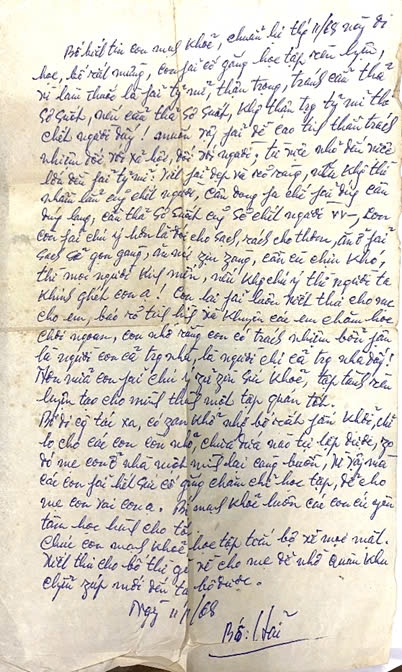 Bố biết tin con mạnh khoẻ, chuẩn bị thg 11/68 này đi
học, bố rất mừng, con fải cố gắng học tập rèn luyện,
vì làm thuốc là fải tỷ mỷ, thận trọng, tránh cẩu thả
sơ suất, nếu cẩu thả sơ suất, khg thận trọg tỷ mỷ thì
chết người đấy! muốn vậy fải đề cao tih thần trách
nhiệm đối với xã hội, đối với người, từ việc nhỏ đến việc
lớn đều fải tỷ mỷ. Viết fải đẹp và rõ ràng, nếu khg thì
nhầm lẫn cũg chết người, cân đong fa chế fải đúg cân
đúg lạng, cẩu thả sơ suất cũg sẽ chết người vv —
con fải chú ý hơn là ở cho sạch, rách cho thơm, ăn ở fải
sạch sẽ gọn gàng, ăn nói zịu zàng, cần cù chịu khó,
thì mọi người kíng mến, nếu khg chú ý thì người ta
khinh ghét con ạ! Con lại fải luôn viết thư cho mẹ
cho em, báo rõ tìh hìh và khuyên các em chăm học
chới ngoan, con nhớ rằng con có trách nhiệm bổn fận
là người con cả trg nhà, là người chị cả trg nhà đấy!
Nữa con fải chú ý zữ zìn sức khoẻ, tập tàng rèn
luyện tạo cho mìh thàh một tập quán tốt.
Bố đi công tác xa, có zan khổ nhg bố rất fấn khởi, chỉ
lo cho các con còn nhỏ, chưa đứa nào tự lập được, zo
đó mẹ con ở nhà một mìh lại càng buồn, vì vậy
các con fải hết sức cố gắng chăm chỉ học tập, để cho
mẹ con vui con ạ. Bố mạnh khoẻ luôn các con cứ yên
tâm học hàh cho tốt.
Chúc con mạnh khoẻ học tập tiến bộ về mọi mặt.
Viết thư cho bố thì gửi về cho mẹ để nhờ Quân khu
chuyển zúp mới đến tay bố được.
Ngày 11/1/68
Bố: Hải